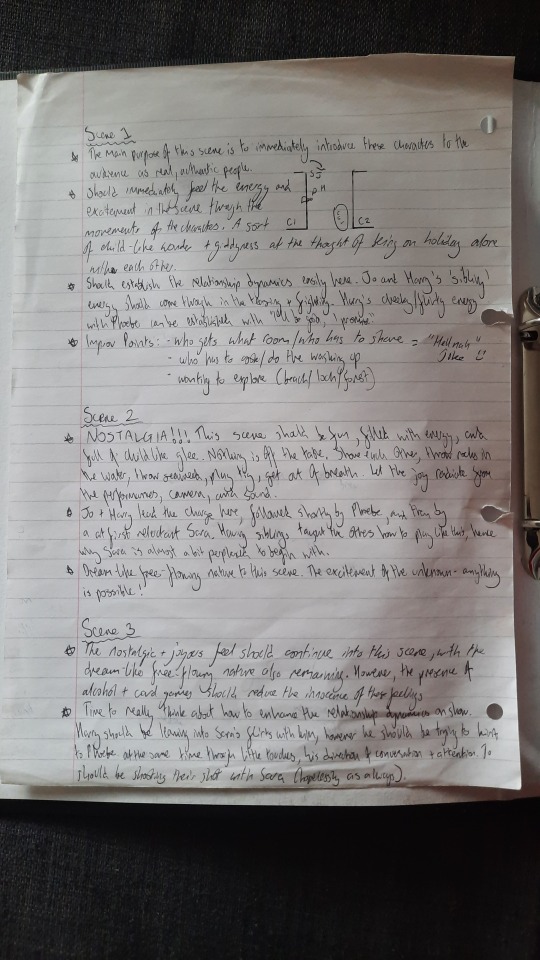 Scene 1
The main purpose of this scene is to immediately introduce these characters to the
audience as real, authentic people.
Should immediately feel the energy and
excitement in the scene through the
movements of the characters. A sort
C1
C2
of child-like wonder + giddyness at the thought of being on holiday alone
with each other.
Should establish the relationship dynamics easily here. Jo and Harry's sibling
energy should come through in the teasing + fighting. Harry's cheeky/flirty energy
with Phoebe can be established with
Improv Points: - who gets what room/who has to share =
Joke
- who has to cook/do the washing up
- wanting to explore (beach/loch/forest)
Scene 2
NOSTALGIA!!! This scene should be fun, filled with energy, and
full of childlike glee. Nothing is off the table. Shove each other, throw rocks in
the water, throw seaweed, play tig, get out of breath. Let the joy radiate from
the performances, camera, and sound.
Jo + Harry lead the charge here, followed shortly by Phoebe, and then by
a at first reluctant Sara. Having siblings taught the others how to play like this, hence
why Sara is almost a bit perplexed to begin with.
Dream-like free-flowing nature to this scene. The excitement of the unknown - anything
is possible!
Scene 3
The nostalgic + joyous feel should continue into this scene, with the
dream-like free-flowing nature also remaining. However, the presence of
alcohol + card games should reduce the innocence of those feelings
Time to really think about how to enhance the relationship dynamics on show.
Harry should be leaning into Sara's flirts with him, however he should be trying to hint
to Phoebe at the same time through little touches, his direction of conversation + attention. Jo
should be shooting their shot with Sara (hopelessly as always).